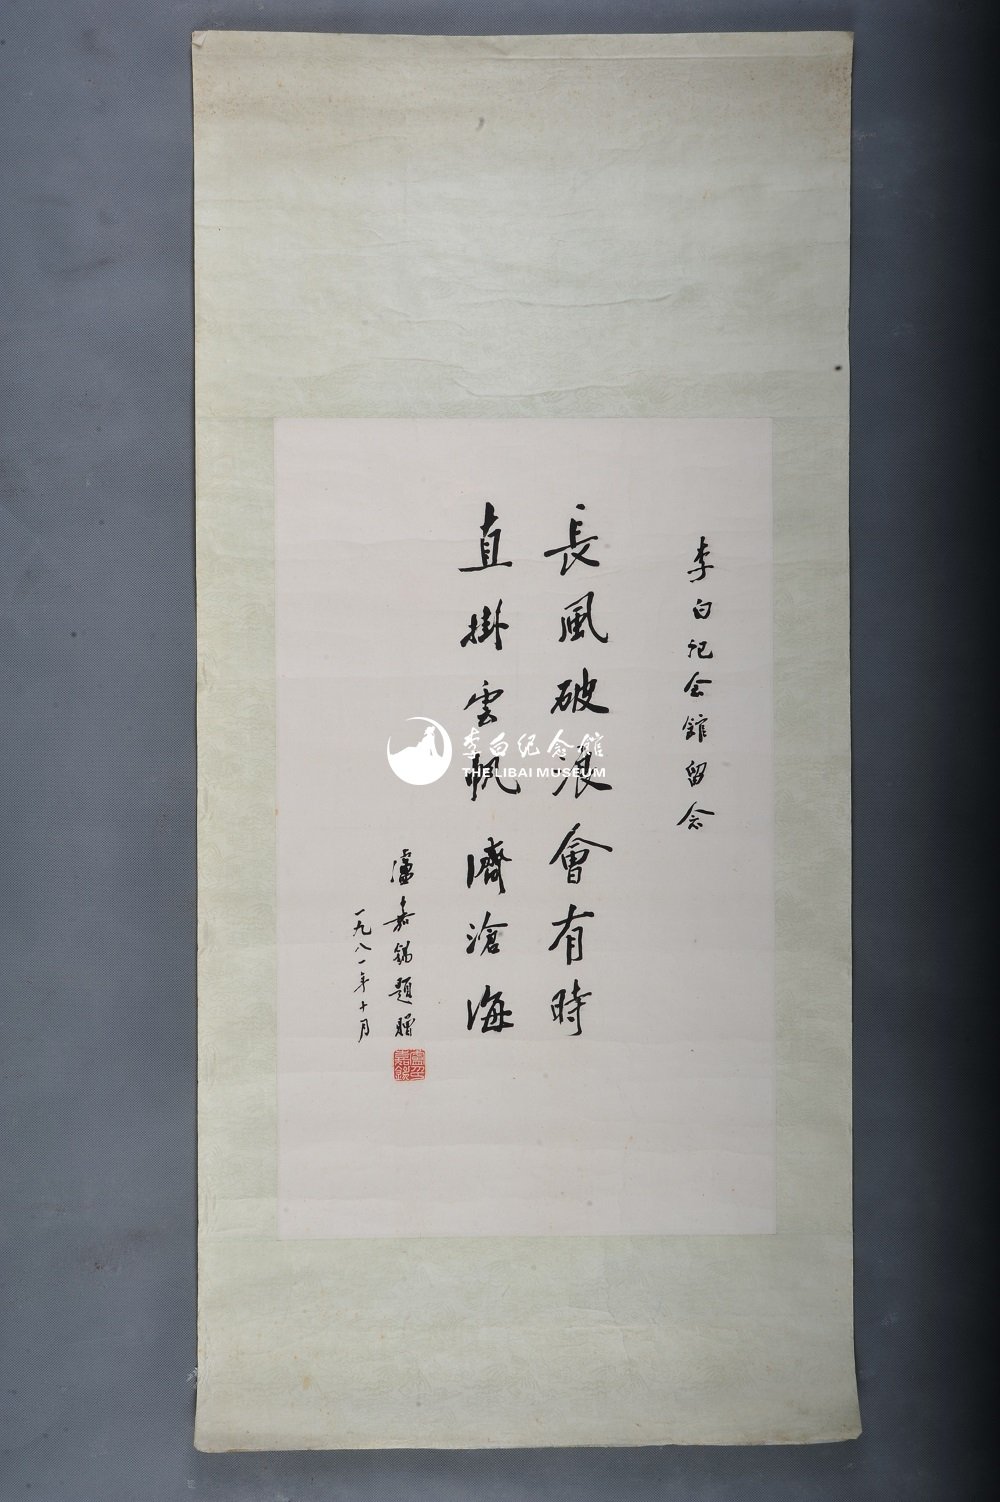 李白纪念館留念
長風破浪會有時
直掛雲帆濟滄海
盧嘉錫題贈
一九八一年十月
盧嘉錫
李白纪念館
THE LIBAI MUSEUM